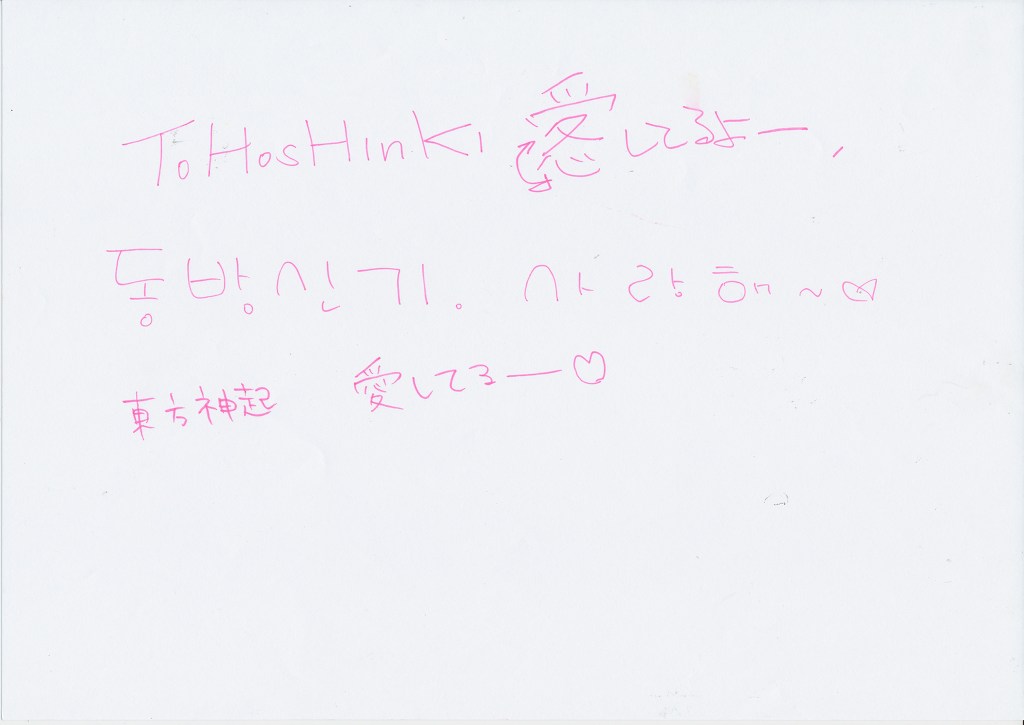 ToHosHinKi 愛してるよー、
동방신기. 사랑해~♡
東方神起 愛してるー♡